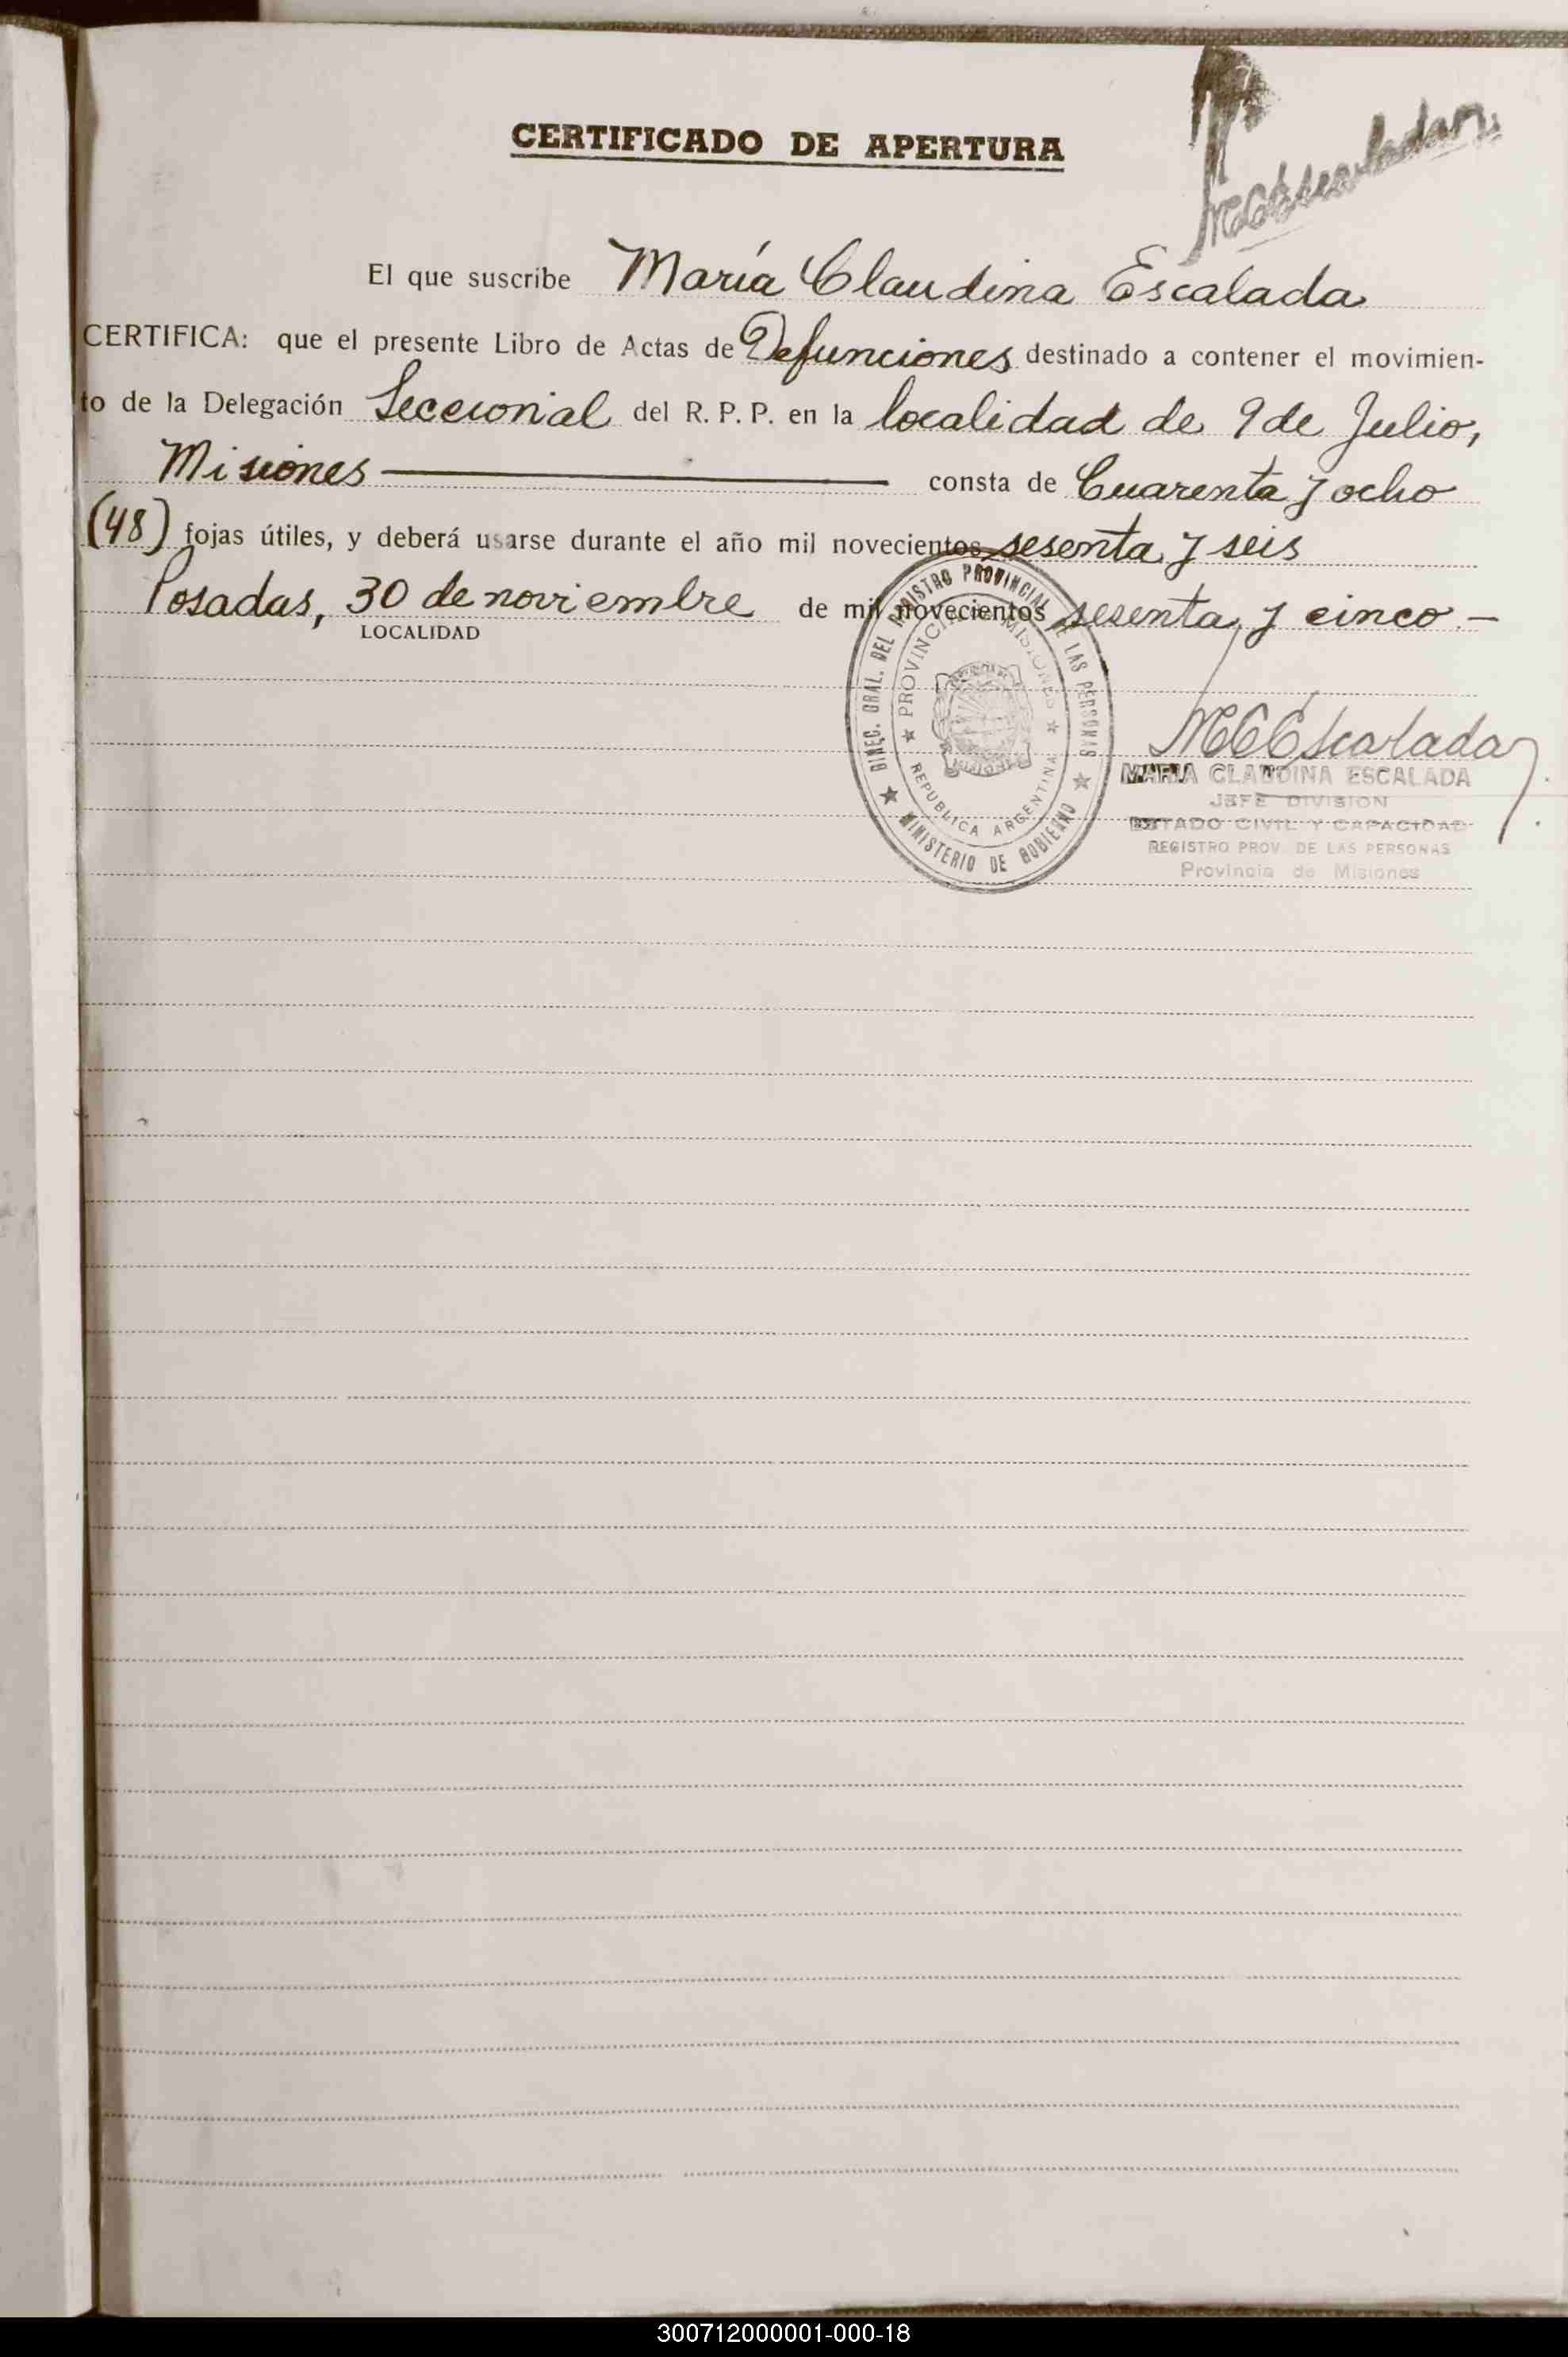 CERTIFICADO DE APERTURA
MCEscalada
El que suscribe María Claudina Escalada
CERTIFICA: que el presente Libro de Actas de Defunciones destinado a contener el movimien-
to de la Delegación Seccional del R. P. P. en la localidad de 9 de Julio,
Misiones consta de Cuarenta y ocho
(48) fojas útiles, y deberá usarse durante el año mil novecientos sesenta y seis
Posadas, 30 de noviembre de mil novecientos sesenta y cinco.-
LOCALIDAD
DIREC. GRAL. DEL REGISTRO PROVINCIAL DE LAS PERSONAS
★ MINISTERIO DE GOBIERNO ★
★ PROVINCIA DE MISIONES ★
REPUBLICA ARGENTINA
MISIONES
MCEscalada
MARIA CLAUDINA ESCALADA
JEFE DIVISION
ESTADO CIVIL Y CAPACIDAD
REGISTRO PROV. DE LAS PERSONAS
Provincia de Misiones
300712000001-000-18